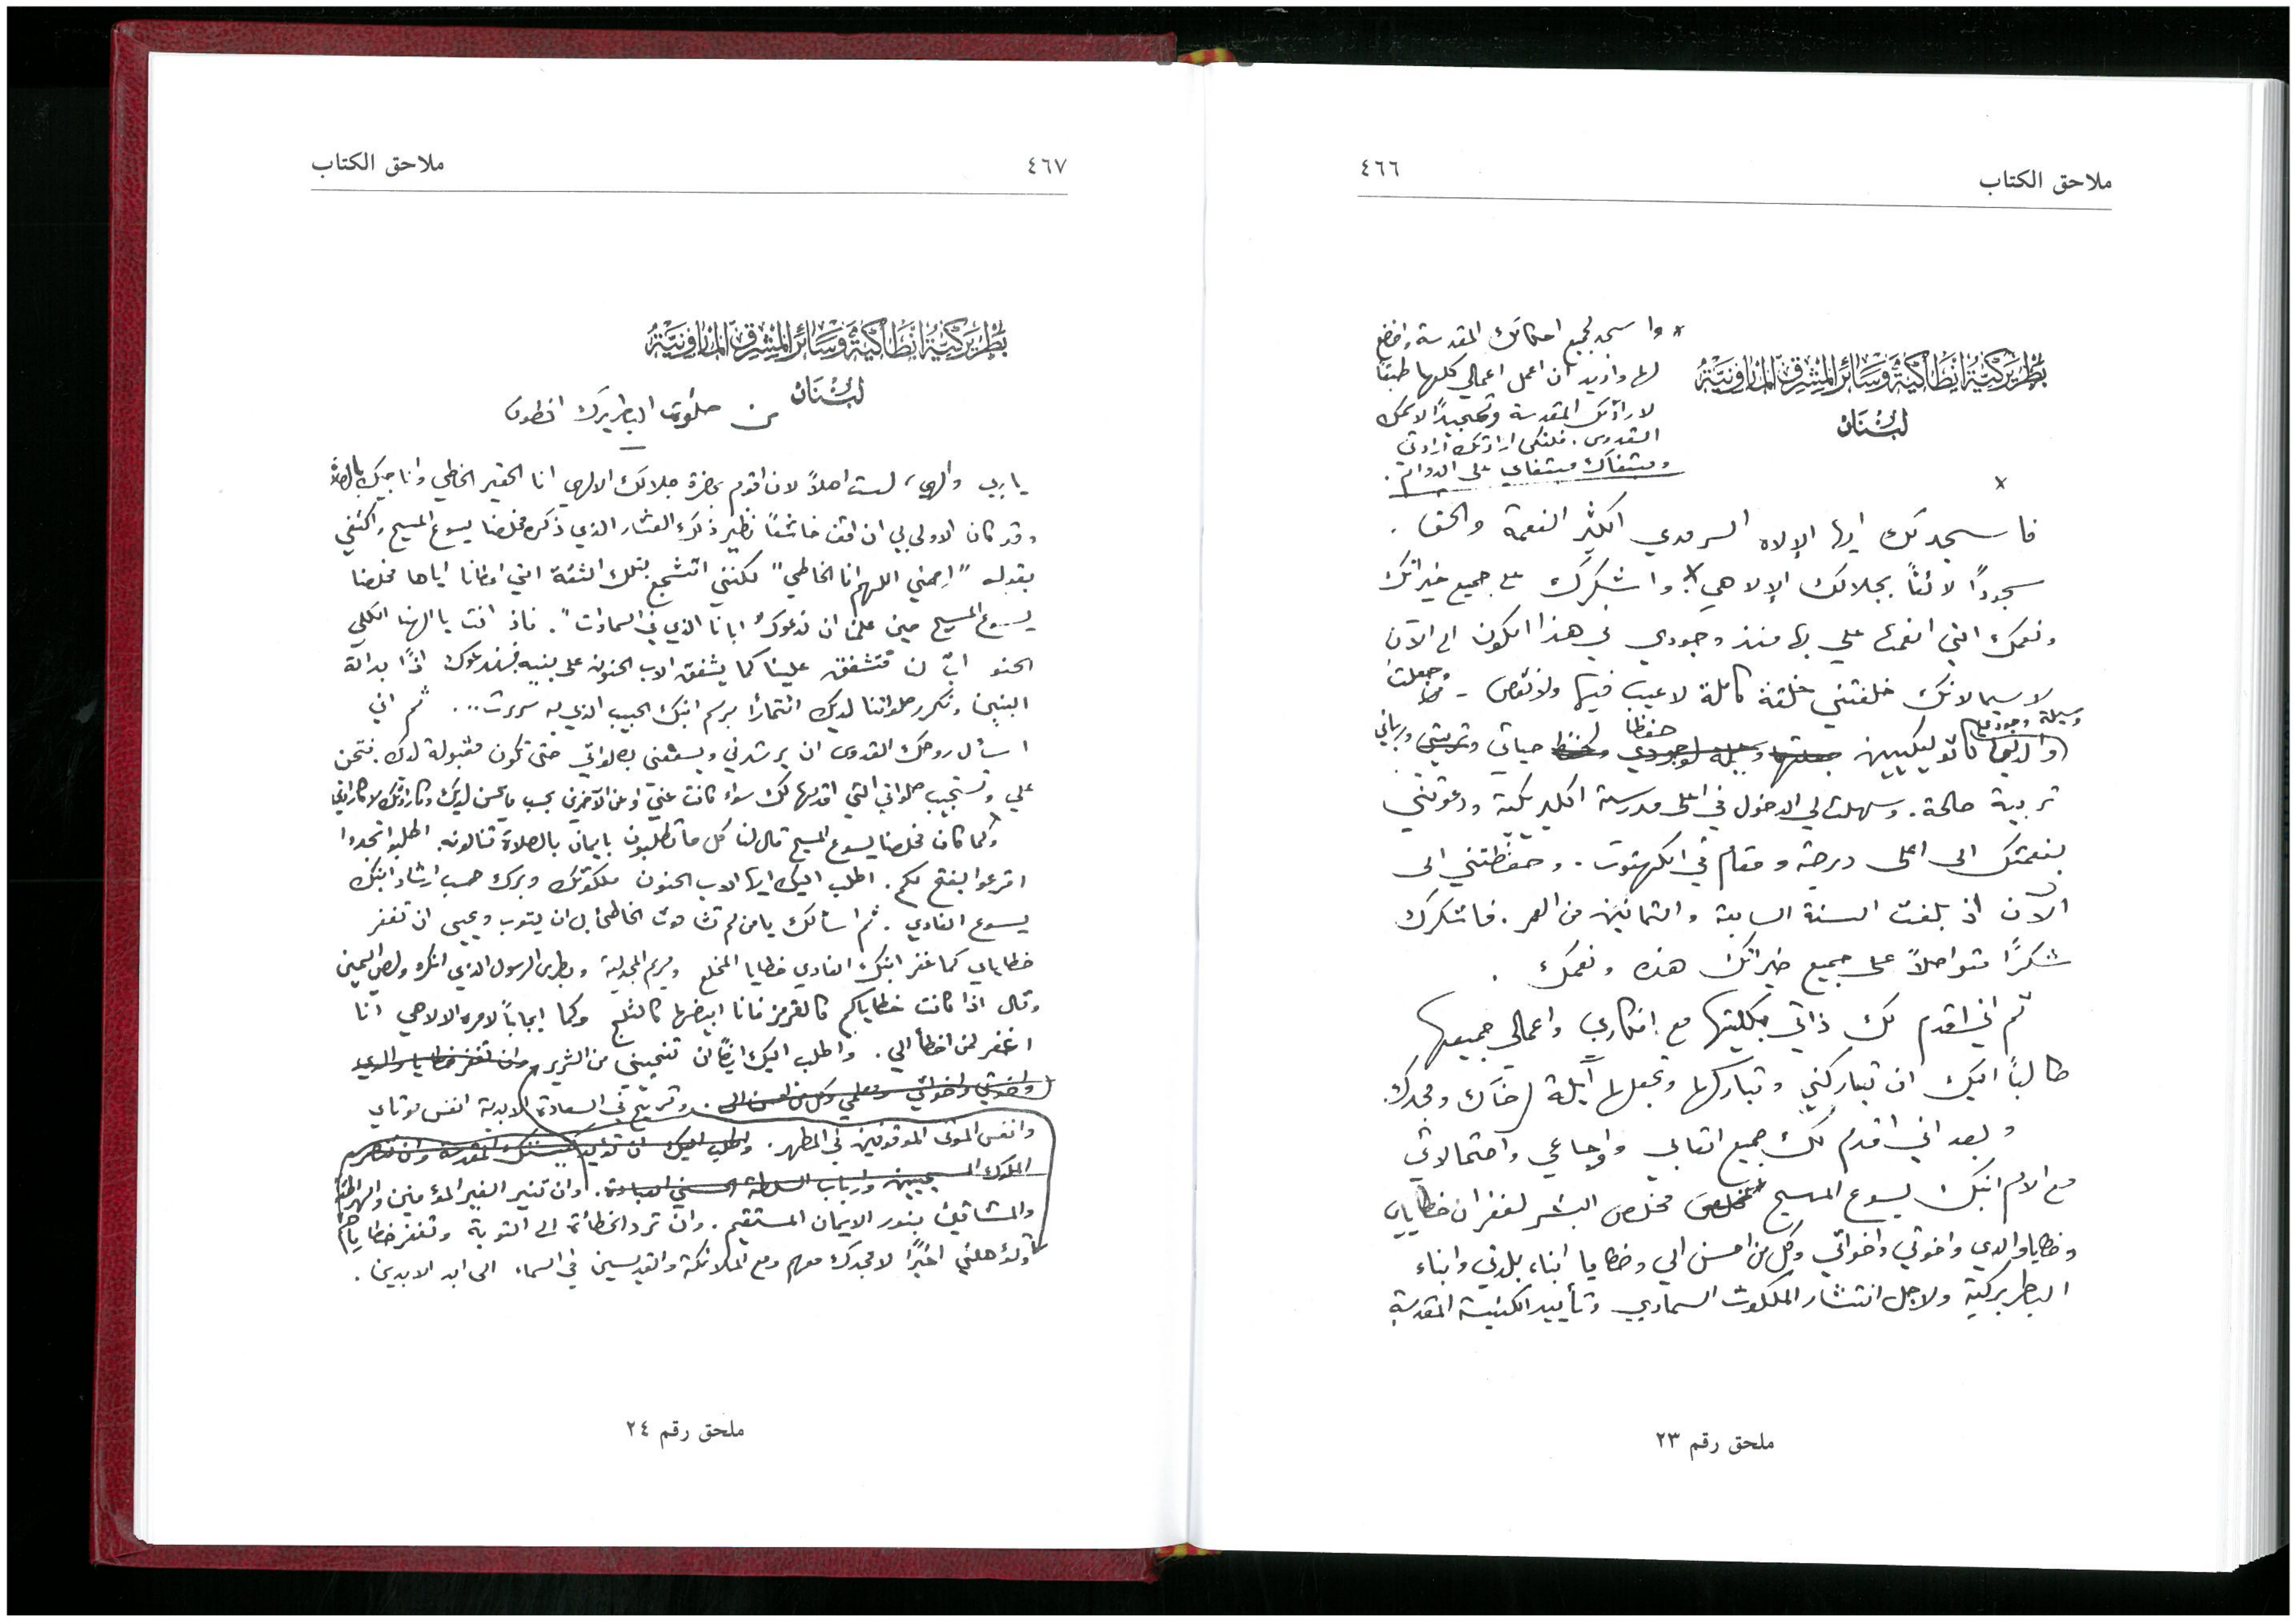 ملاحق الكتاب
٤٦٦
* واسجد لجميع احكامك المقدسة واخضع
لها واريد ان اعمل اعمالي كلها طبقاً
لارادتك المقدسة وتمجيدًا لاسمك
القدوس. فلتكن ارادتك ارادتي
ومشيئتك على الدوام.
بطريركية انطاكية وسائر المشرق المارونية
لبنان
x
فاسجد لك ايها الإلاه السرمدي الكثير النعمة والحق.
سجودًا لائقاً بجلالك الإلاهي x واشكرك على جميع خيراتك
ونعمك التي انعمت علي بها منذ وجودي في هذا الكون الى الآن
لاسيما لانك خلقتني خلقة كاملة لا عيب فيها ولا نقص - وجعلت
والدي كاثوليكيين وسيلة وجودي حفظا حياتي وربياني
تربية صالحة. وسهلت لي الدخول في اعلى مدرسة اكليريكية ودعوتني
بنعمتك الى اعلى درجة ومقام في الكهنوت. وحفظتني الى
الآن اذ بلغت السنة السابعة والثمانين من العمر. فاشكرك
شكرًا متواصلاً على جميع خيراتك هذه ونعمك.
ثم اني اقدم لك ذاتي بكليتها مع افكاري واعمالي جميعها
طالباً اليك ان تباركني وتباركها وتجعلها آيلة لرضاك ومجدك.
وبعد اني اقدم لك جميع اتعابي واوجاعي واحتمالاتي
مع الام ابنك يسوع المسيح مخلص البشر لغفران خطاياي
وخطايا والدي واخوتي واخواتي وكل من احسن الي وخطايا ابناء بلدتي وابناء
البطريركية ولاجل انتشار الملكوت السماوي وتأييد الكنيسة المقدسة
ملحق رقم ٢٣
٤٦٧
ملاحق الكتاب
بطريركية انطاكية وسائر المشرق المارونية
لبنان
من صلوات البطريرك انطون
يا ربي والهي، لست اهلاً لان اقوم بحضرة جلالك الالهي انا الحقير الخاطي واناجيك بالصلاة
وقد كان الاولى بي ان اقف خاشعًا نظير ذلك العشار الذي ذكره مخلصنا يسوع المسيح واكتفي
بقوله "ارحمني اللهم انا الخاطي" لكنني اتشجع بتلك الثقة التي اعطانا اياها مخلصنا
يسوع المسيح حين علمنا ان ندعوك "ابانا الذي في السماوات". فاذ انت يا الهنا الكلي
الحنو ابٌ لنا فتشفق علينا كما يشفق الاب الحنون على بنيه فسندعوك اذًا بدالة
البنين ونكرر صلواتنا لديك ائتمارًا برسم ابنك الحبيب الذي به سررت... ثم اني
اسأل روحك القدوس ان يرشدني ويسعفني بصلواتي حتى تكون مقبولة لديك. فتحنن
علي وتستجيب صلواتي التي اقدمها لك سواء كانت عني او عن الآخرين بحسب ما يحسن لديك وكارادتك لا كارادتي
وكما كان مخلصنا يسوع المسيح قال لنا كل ما تطلبون بايمان بالصلاة تنالونه. اطلبوا تجدوا
اقرعوا يفتح لكم. اطلب اليك ايها الاب الحنون ملكوتك وبرك حسب ارشاد ابنك
يسوع الفادي. ثم اسألك يا من لم تشأ موت الخاطئ بل ان يتوب ويحيى ان تغفر
خطاياي كما غفر ابنك الفادي خطايا المخلع ومريم المجدلية وبطرس الرسول الذي انكره ولص اليمين
وقال اذا كانت خطاياكم كالقرمز فانا ابيضها كالثلج وكما ايجاباً لامره الالاهي انا
اغفر لمن اخطأ الي. واطلب اليك ايضًا ان تنجيني من الشرير وان تغفر خطايا والدي
واخوتي واخواتي ومعلمي وكل من احسن الي. وتريح في السعادة الابدية انفس موتاي
وانفس الموتى الموقوفين في المطهر. واطلب اليك ان تؤيد كنيستك المقدسة وان تنصر
الملوك المسيحيين وارباب السلطة الحسني العبادة. وان تنير الغير المؤمنين والهراطقة
والمشاقين بنور الايمان المستقيم. وان ترد الخطأة الى التوبة وتغفر خطاياهم
وتؤهلني اخيرًا لامجدك معهم ومع الملائكة والقديسين في السماء الى ابد الابدين.
ملحق رقم ٢٤